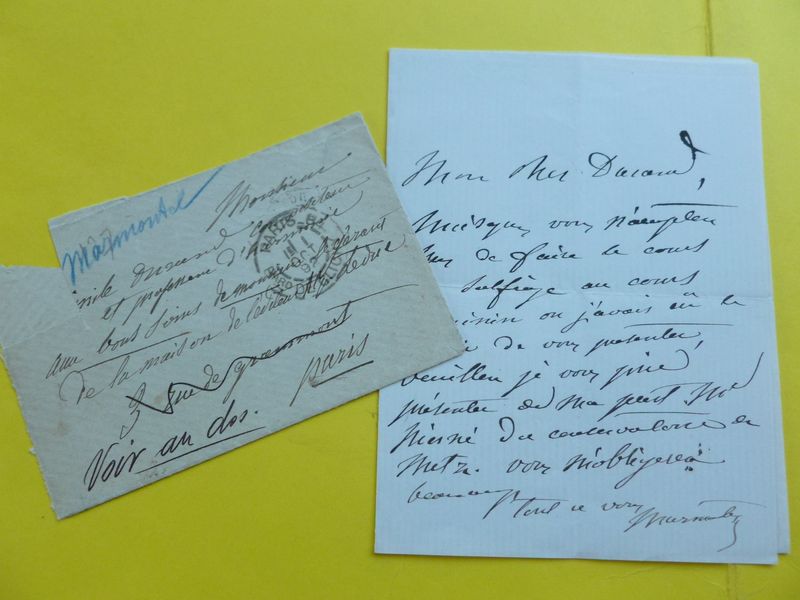 Marmontel
Monsieur
Emile Durand Compositeur
et professeur d'harmonie
aux bons soins de monsieur le gérant
de la maison de l'éditeur Leduc
3 rue de grammont
Voir au dos. Paris
PARIS
OCT
Mon cher Durand,
Puisque vous n'acceptez
pas de faire le cours
solfège au cours
ou j'avais eu le
de vous présenter,
veuillez je vous prie
présenter de ma part Mr
Pierné du conservatoire de
Metz. vous m'obligerez
beaucoup
Tout à vous
Marmontel